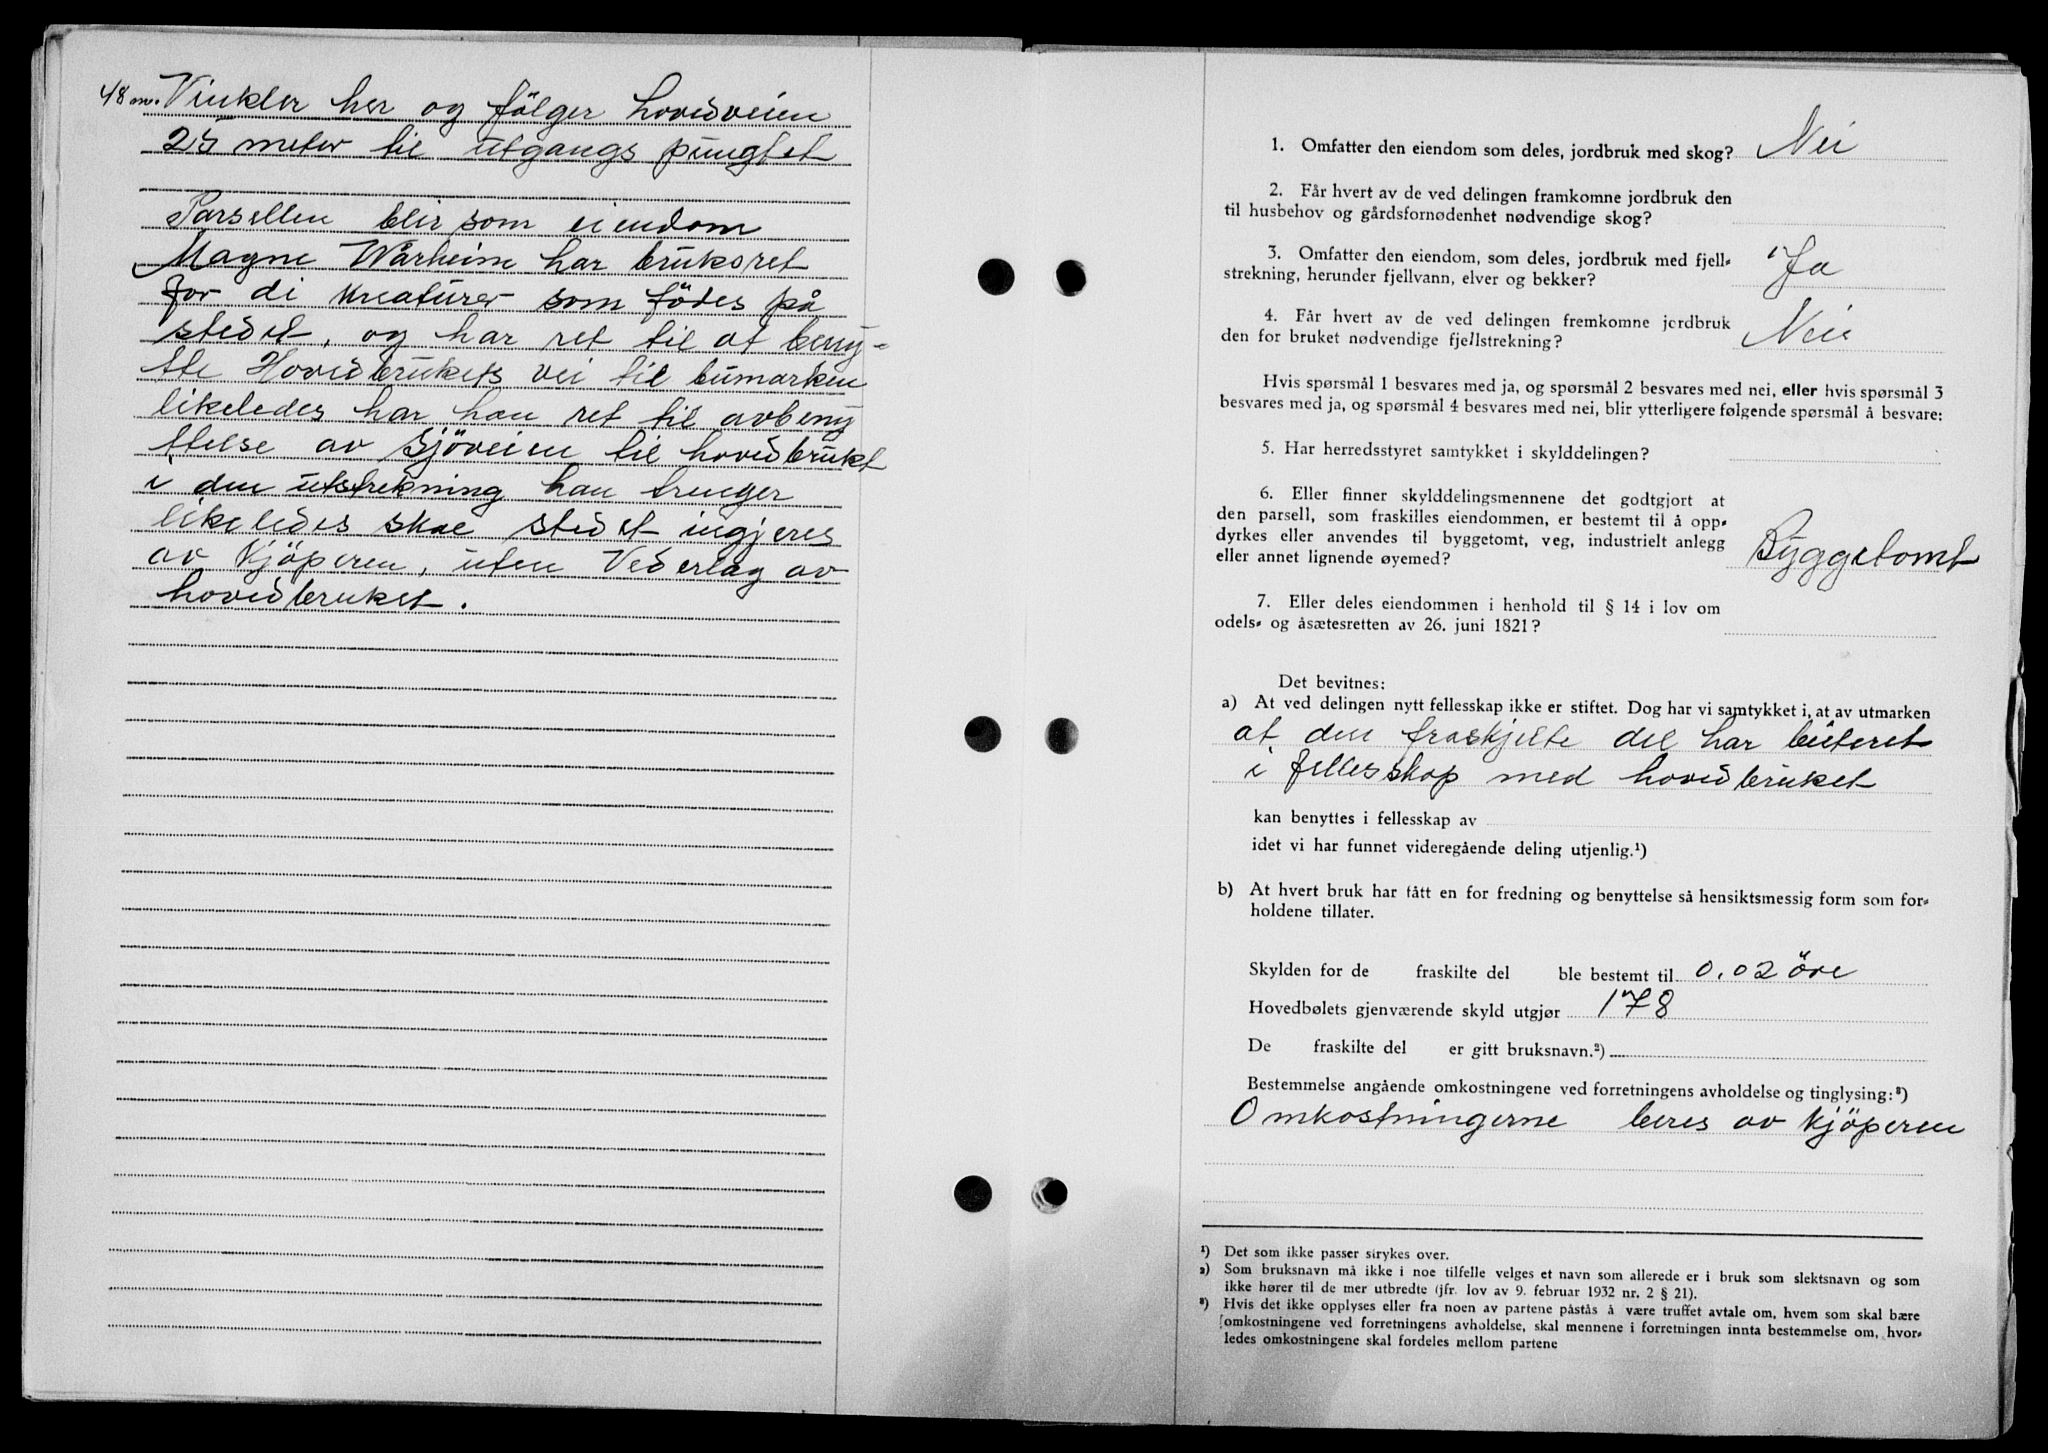 48 m. Vinkler her og fölger hovedveien
25 meter til utgangs pungtet
Parsellen blir som eiendom
Magne Wårheim har bruksret
for di kreaturer som födes på
stedet, og har ret til at beny-
tte Hovedbrukets vei til bumarken
likeledes har han ret til avbeny
ttelse av Sjöveien til hovedbruket
i den utstrekning han trenger
likeledes skal stedet ingjeres
av Kjöperen, uten Vederlag av
hovedbruket.
1. Omfatter den eiendom som deles, jordbruk med skog? Nei
2. Får hvert av de ved delingen framkomne jordbruk den
til husbehov og gårdsfornødenhet nødvendige skog?
3. Omfatter den eiendom, som deles, jordbruk med fjell-
strekning, herunder fjellvann, elver og bekker? Ja
4. Får hvert av de ved delingen fremkomne jordbruk
den for bruket nødvendige fjellstrekning? Nei
Hvis spørsmål 1 besvares med ja, og spørsmål 2 besvares med nei, eller hvis spørsmål 3
besvares med ja, og spørsmål 4 besvares med nei, blir ytterligere følgende spørsmål å besvare:
5. Har herredsstyret samtykket i skylddelingen?
6. Eller finner skylddelingsmennene det godtgjort at
den parsell, som fraskilles eiendommen, er bestemt til å opp-
dyrkes eller anvendes til byggetomt, veg, industrielt anlegg
eller annet lignende øyemed? Byggetomt
7. Eller deles eiendommen i henhold til § 14 i lov om
odels- og åsætesretten av 26. juni 1821?
Det bevitnes:
a) At ved delingen nytt fellesskap ikke er stiftet. Dog har vi samtykket i, at av utmarken
at den fraskjelte del har beiteret
i fellesskap med hovedbruket
kan benyttes i fellesskap av
idet vi har funnet videregående deling utjenlig.¹)
b) At hvert bruk har fått en for fredning og benyttelse så hensiktsmessig form som for-
holdene tillater.
Skylden for de fraskilte del ble bestemt til 0.02 öre
Hovedbølets gjenværende skyld utgjør 178
De fraskilte del er gitt bruksnavn.²)
Bestemmelse angående omkostningene ved forretningens avholdelse og tinglysing:³)
Omkostningerne beres av Kjöperen
¹) Det som ikke passer strykes over.
²) Som bruksnavn må ikke i noe tilfelle velges et navn som allerede er i bruk som slektsnavn og som
ikke hører til de mer utbredte (jfr. lov av 9. februar 1932 nr. 2 § 21).
³) Hvis det ikke opplyses eller fra noen av partene påstås å være truffet avtale om, hvem som skal bære
omkostningene ved forretningens avholdelse, skal mennene i forretningen innta bestemmelse om, hvor-
ledes omkostningene skal fordeles mellom partene